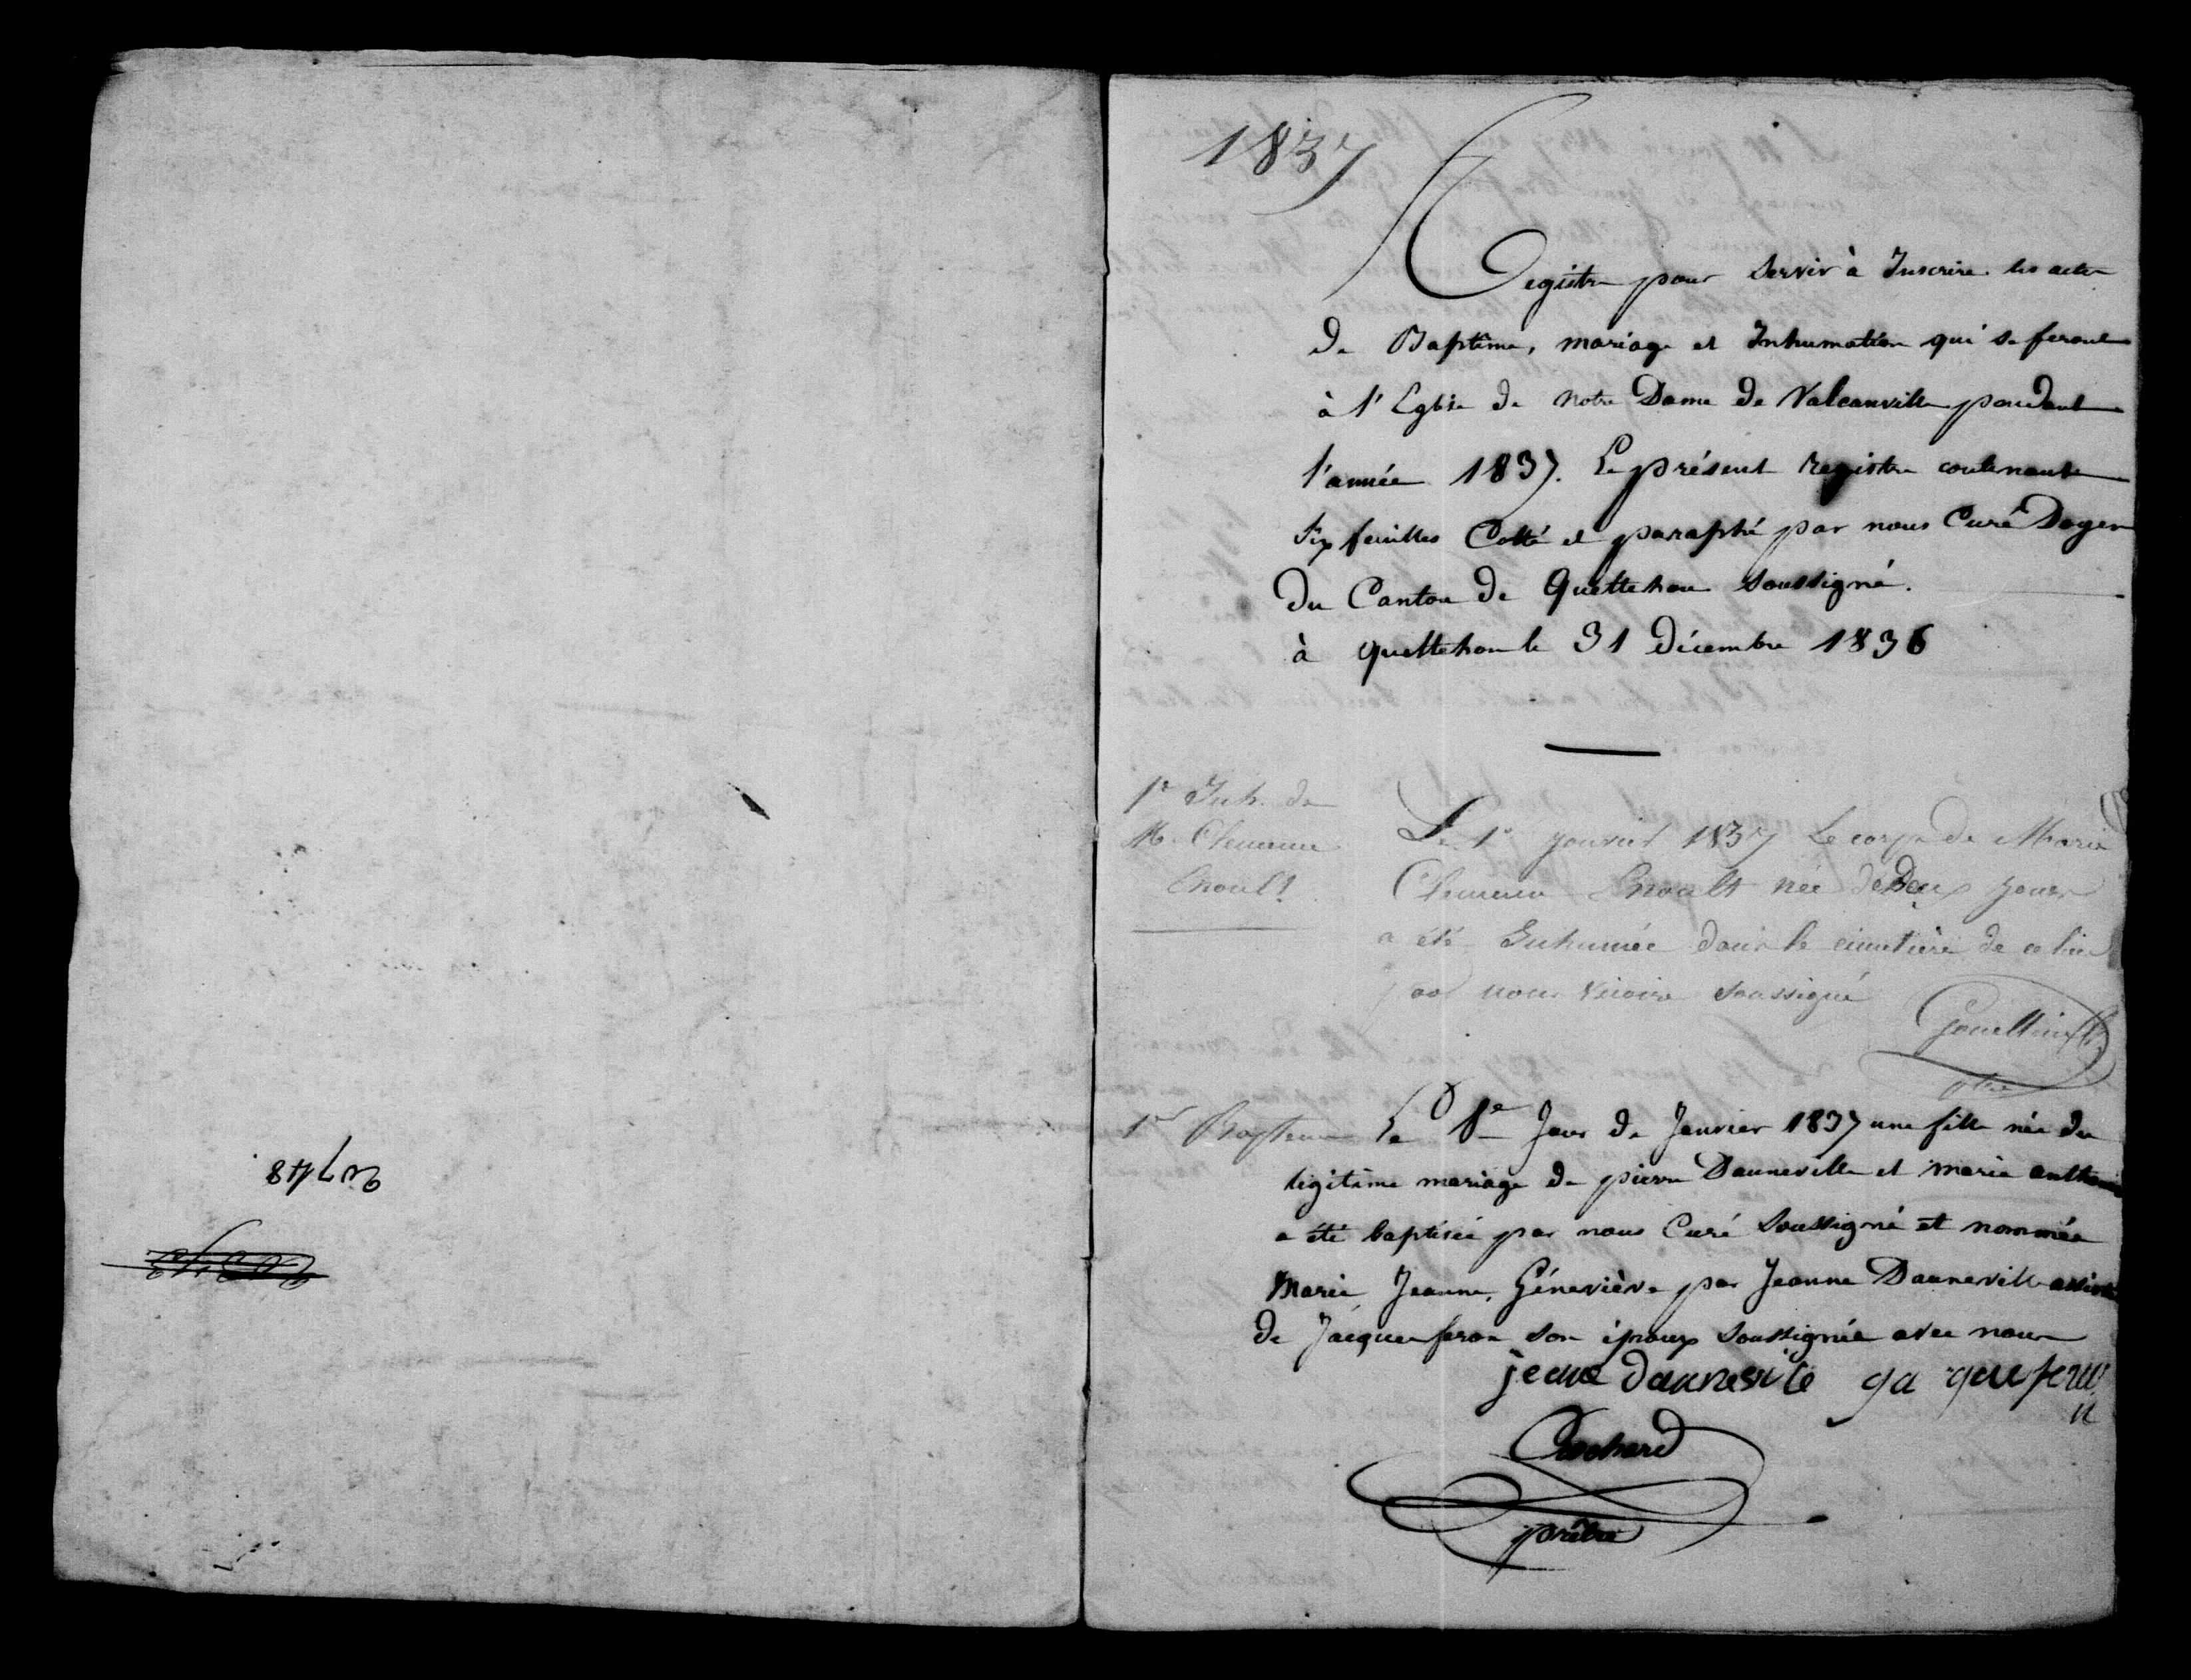 8 7 48
1837
Registre pour servir à Inscrire les actes
De Baptême, mariage et Inhumation qui se feront
à l'Eglise de Notre Dame de Valcanville pendant
l'année 1837. Le présent registre contenant
Six feuilles Cotté et paraphé par nous Curé Doyen
du Canton de Quettehou soussigné.
à quettehou le 31 Décembre 1836
1er Inh. de
M. Clemence
Enoult
Le 1er janvier 1837 Le corps de Marie
Clemence Enoult née de Deux jours
a été Inhumée dans le cimetière de ce lieu
par nous vicaire soussigné
ptre
1er Bapteme
Le 1er Jour de Janvier 1837 une fille née du
légitime mariage de pierre Danneville et marie anthoine
a été baptisée par nous Curé soussigné et nommée
Marie, Jeanne, Géneviève par Jeanne Danneville assistée
de Jacques feron son époux soussignée avec nous
jeane danneville ja que feron
Cochard
prêtre